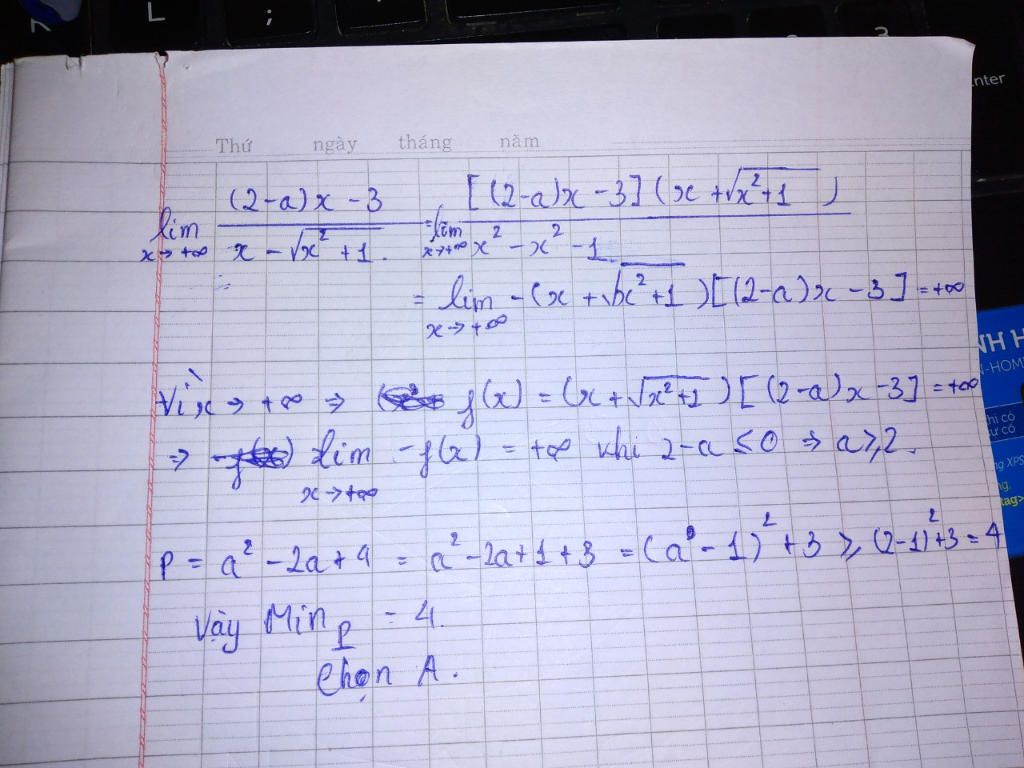 K L ;
Enter
Thứ ngày tháng năm
lim x→+∞ (2-a)x - 3 / x - √x² + 1 . = lim x→+∞ [(2-a)x - 3](x + √x²+1 ) / x² - x² - 1
= lim x→+∞ -(x + √x²+1)[(2-a)x - 3] = +∞
Vì x → +∞ ⇒ f(x) = (x + √x²+1)[(2-a)x - 3] = +∞
⇒ lim x→+∞ -f(x) = +∞ khi 2-a ≤ 0 ⇒ a ≥ 2.
P = a² - 2a + 4 = a² - 2a + 1 + 3 = (a - 1)² + 3 ≥ (2-1)² + 3 = 4
Vậy Min P = 4.
Chọn A.
NH H
N-HOM